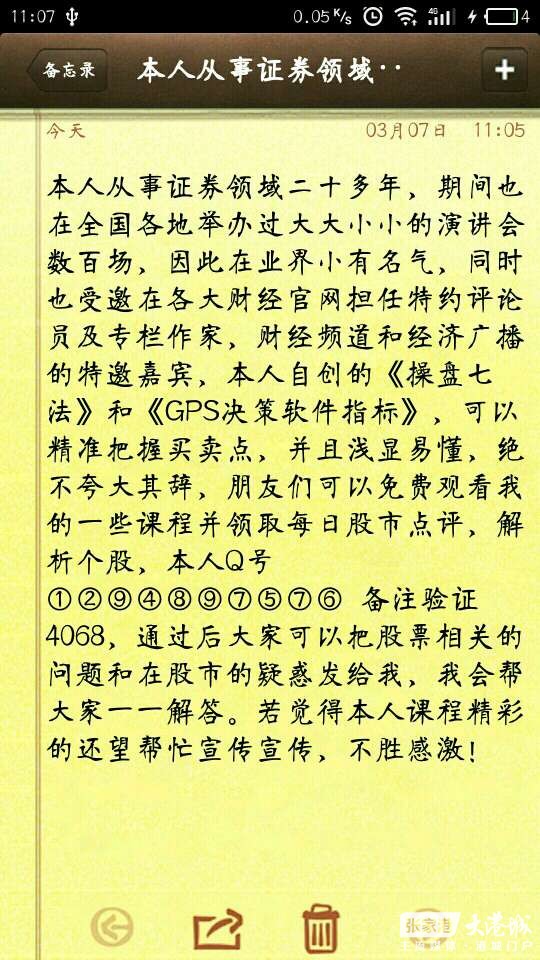 11:07 0.05 K/s 4G 4
备忘录 本人从事证券领域‥ +
今天 03月07日 11:05
本人从事证券领域二十多年，期间也
在全国各地举办过大大小小的演讲会
数百场，因此在业界小有名气，同时
也受邀在各大财经官网担任特约评论
员及专栏作家，财经频道和经济广播
的特邀嘉宾，本人自创的《操盘七
法》和《GPS决策软件指标》，可以
精准把握买卖点，并且浅显易懂，绝
不夸大其辞，朋友们可以免费观看我
的一些课程并领取每日股市点评，解
析个股，本人Q号
①②⑨④⑧⑨⑦⑤⑦⑥ 备注验证
4068，通过后大家可以把股票相关的
问题和在股市的疑惑发给我，我会帮
大家一一解答。若觉得本人课程精彩
的还望帮忙宣传宣传，不胜感激！
张家港 大港城